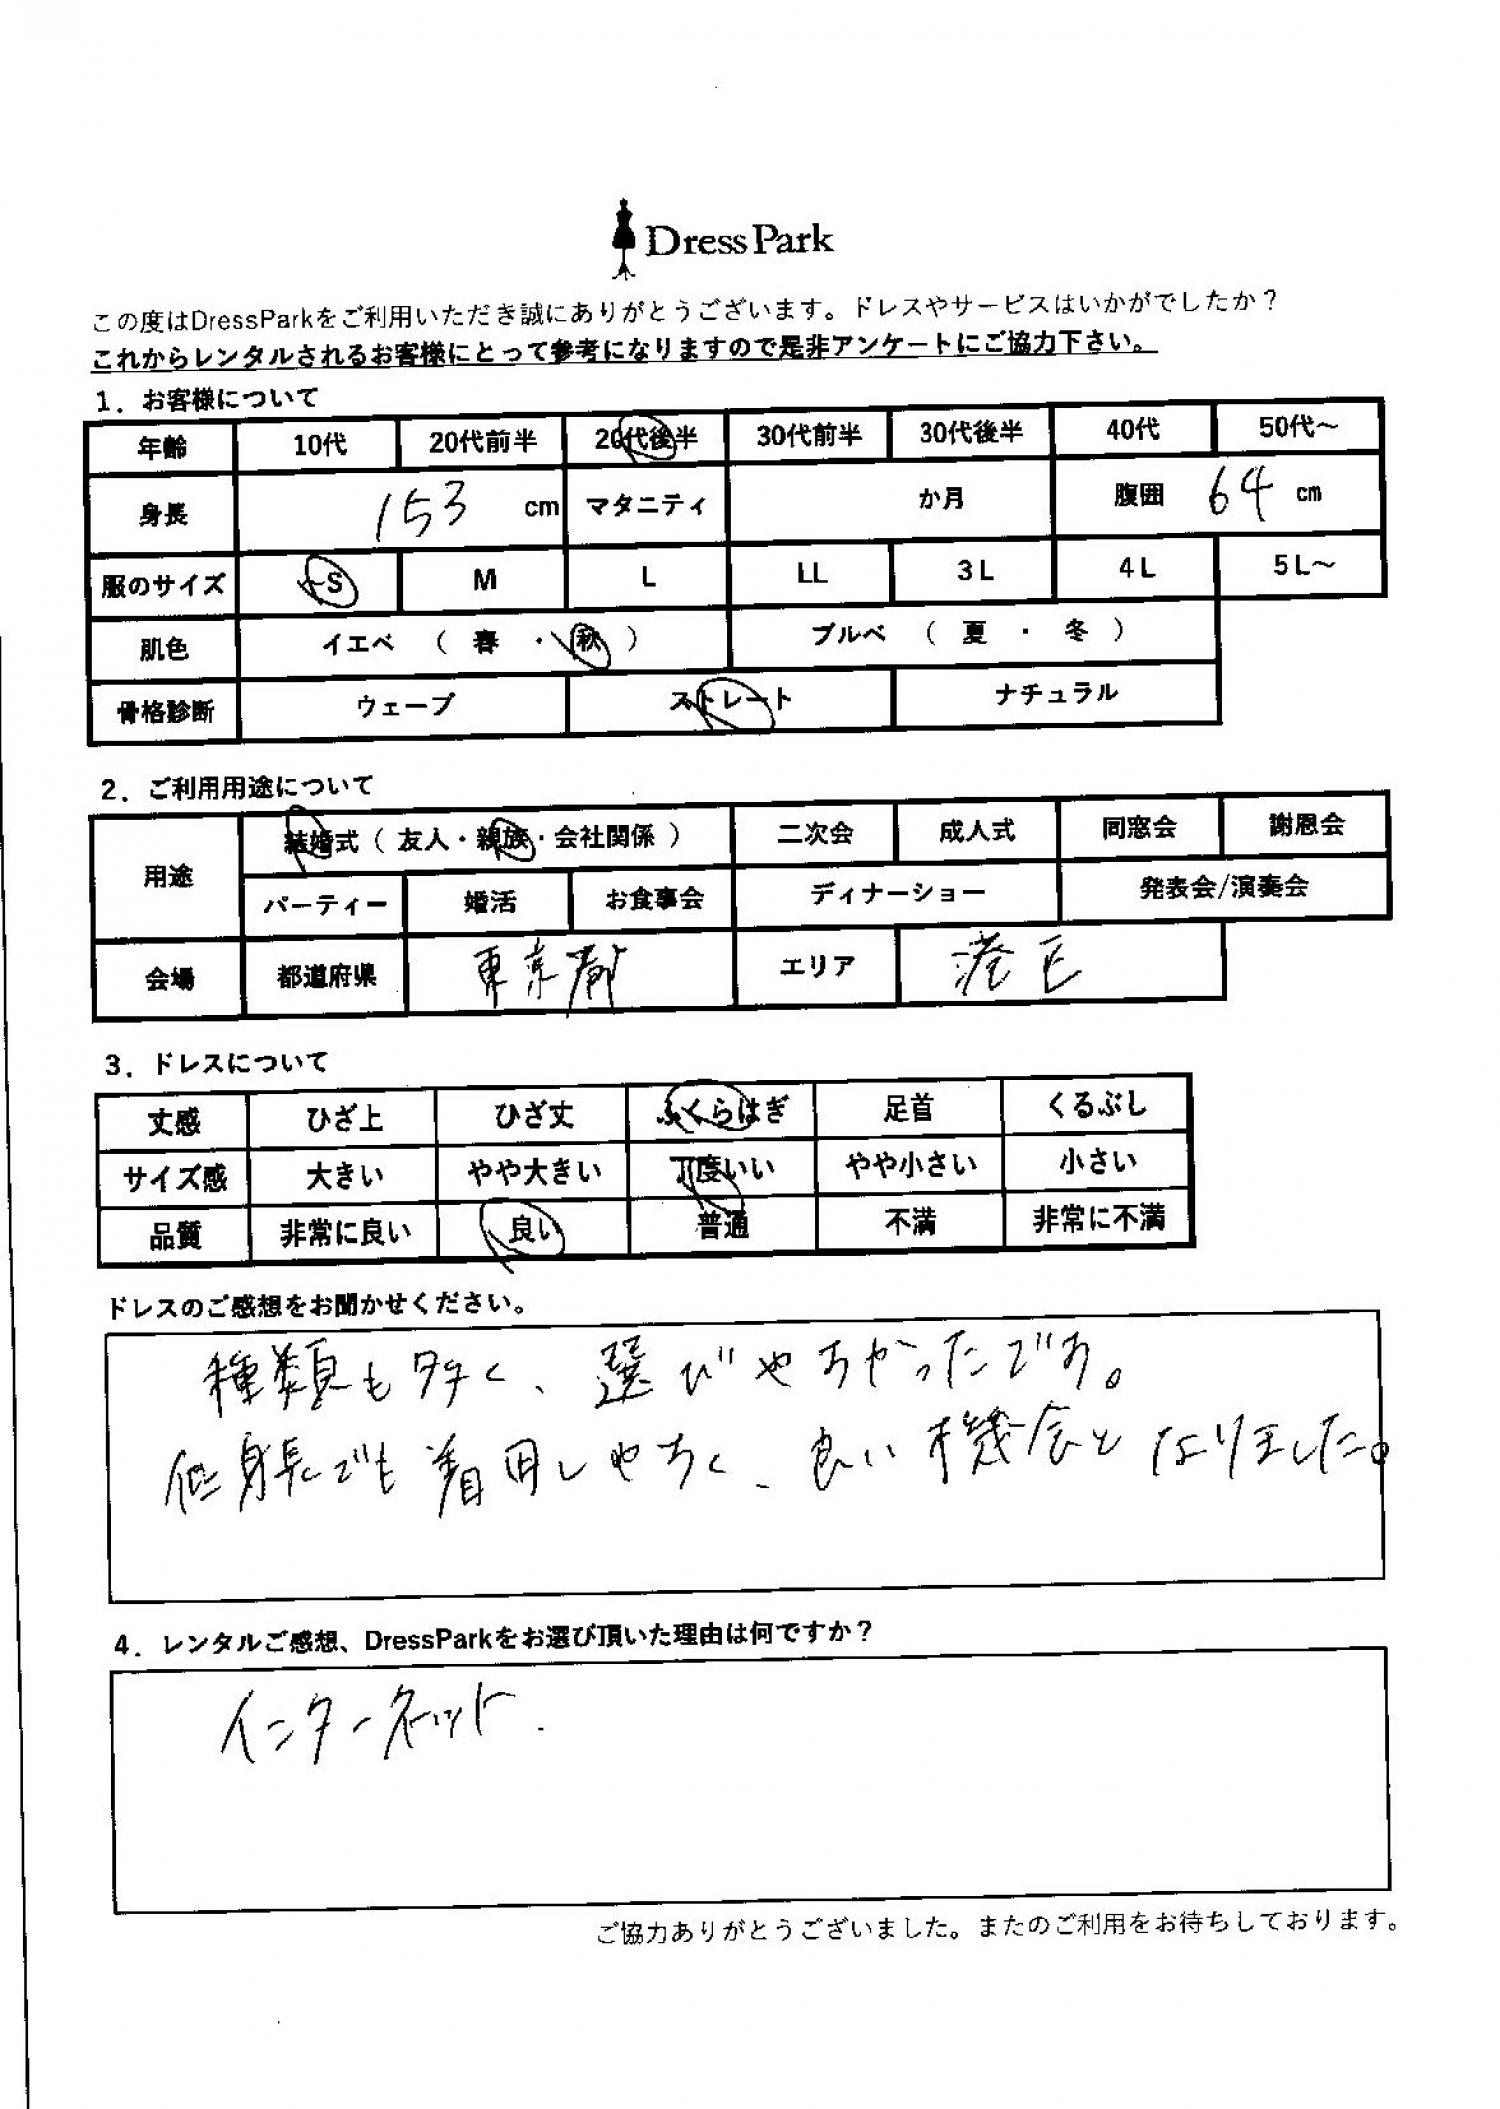 DressPark
この度はDressParkをご利用いただき誠にありがとうございます。ドレスやサービスはいかがでしたか？
これからレンタルされるお客様にとって参考になりますので是非アンケートにご協力下さい。
1．お客様について
年齢 10代 20代前半 20代後半 30代前半 30代後半 40代 50代～
身長 153 cm マタニティ か月 腹囲 64 cm
服のサイズ ～S M L LL 3L 4L 5L～
肌色 イエベ （ 春 ・ 秋 ） ブルベ （ 夏 ・ 冬 ）
骨格診断 ウェーブ ストレート ナチュラル
2．ご利用用途について
用途 結婚式（ 友人・親族・会社関係 ） 二次会 成人式 同窓会 謝恩会
パーティー 婚活 お食事会 ディナーショー 発表会/演奏会
会場 都道府県 東京都 エリア 港区
3．ドレスについて
丈感 ひざ上 ひざ丈 ふくらはぎ 足首 くるぶし
サイズ感 大きい やや大きい 丁度いい やや小さい 小さい
品質 非常に良い 良い 普通 不満 非常に不満
ドレスのご感想をお聞かせください。
種類も多く、選びやすかったです。
低身長でも着用しやすく、良い機会となりました。
4．レンタルご感想、DressParkをお選び頂いた理由は何ですか？
インターネット.
ご協力ありがとうございました。またのご利用をお待ちしております。